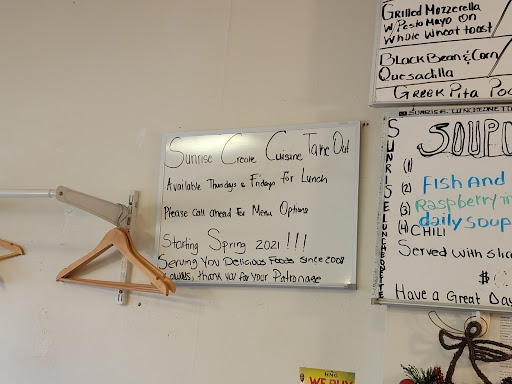 Sunrise Creole Cuisine Take Out
Available Thursdays & Fridays for Lunch
Please Call ahead For Menu Options
Starting Spring 2021 !!!
Serving You Delicious Foods since 2002
thank you for Your Patronage
Grilled Mozzerella
W/Pesto Mayo On
Whole Wheat toast
Black Bean & Corn
Quesadilla
Greek Pita
Sunrise Luncheonette
SUNRISE LUNCHEONETTE
SOUP
(1)
(2) Fish And
(3) Raspberry
(4) daily Soup
CHILI
Served with
$
Have a Great Day
HNG
WE BUY